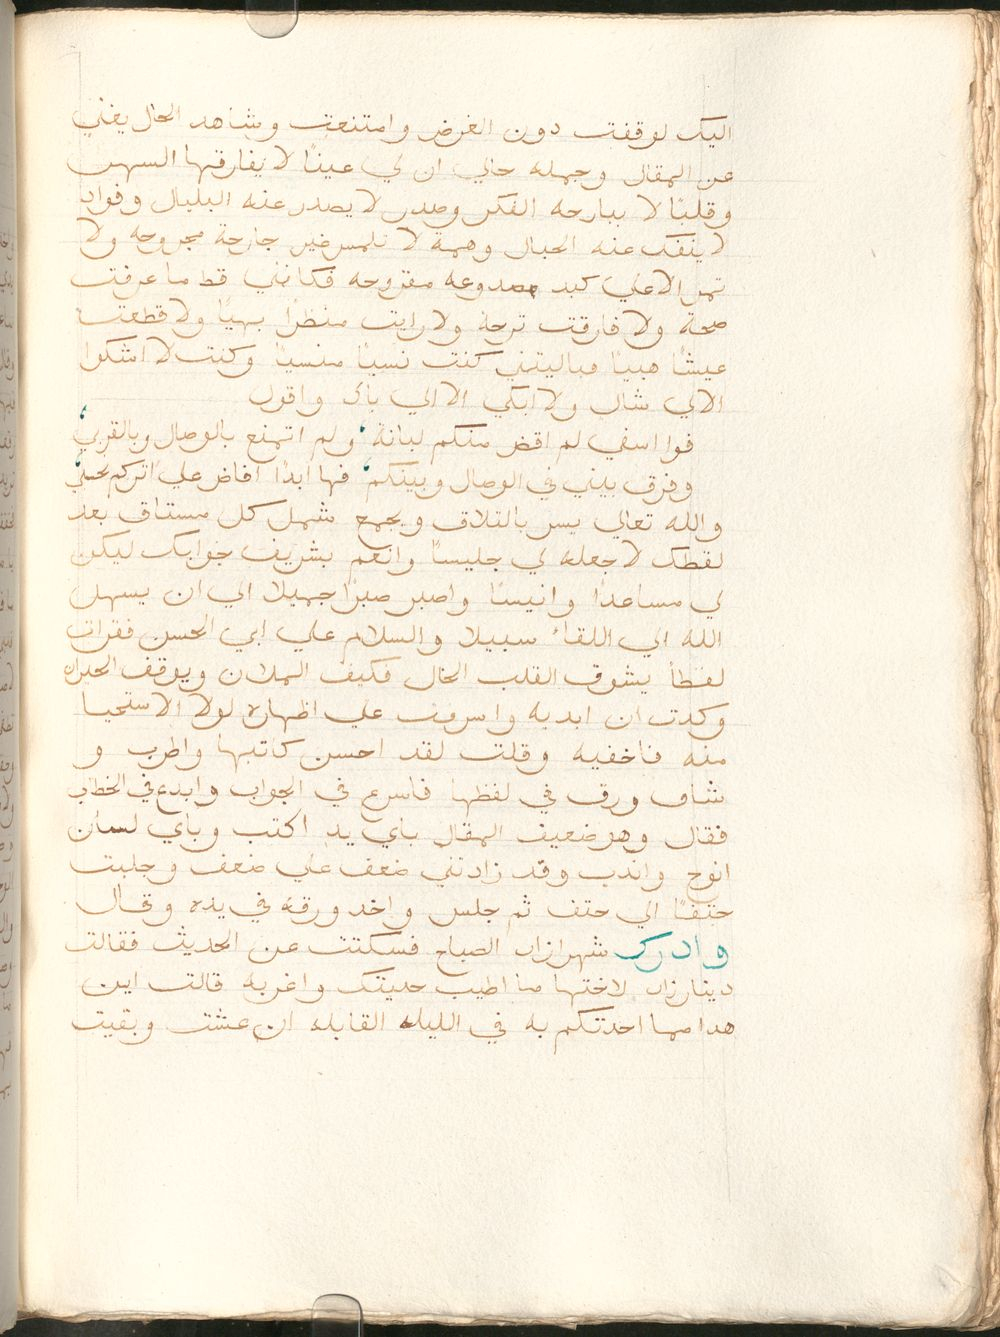 اليك لوقفت دون الغرض وامتنعت وشاهد الحال يغني
عن المقال وجمله حالي ان لي عينًا لا يفارقها السهر
وقلبًا لا يبارحه الفكر وصدر لا يصدر عنه البلبال وفواد
لاينفك عنه الخبال وهمة لا تلمس غير جارحة مجروحه ولا
تمر الاعلي كبد مصدوعه مقروحه فكانني قط ما عرفت
صحة ولا فارقت ترحة ولا رايت منظرًا بهيًا ولا قطعت
عيشًا هنيًا فياليتني كنت نسيًا منسيًا وكنت لا اشكوا
الالي شاك ولا ابكي الا الي باك واقول
فوا اسفي لم اقض منكم لبانة ولم اتمتع بالوصال وبالقرب
وفرق بيني في الوصال وبينكم فها ابدًا افاض علي اثركم
والله تعالي يسر بالتلاق ويجمع شمل كل مستاق بعد
لفظك لاجعله لي جليسًا وانعم بشريف جوابك ليكون
لي مساعدًا وانيسًا واصبر صبرًا جميلا الي ان يسهل
الله الي اللقاء سبيلا والسلام علي ابي الحسن فقرات
لفظًا يشوق القلب الخال فكيف الملان ويوقف
وكدت ان ابديه واسرفت علي اظهاره لولا الاستحيا
منه فاخفيه وقلت لقد احسن كاتبها واطرب و
شاف ورق في لفظها فاسرع في الجواب وابدع في الخطاب
فقال وهو ضعيف المقال باي يد اكتب وباي لسان
انوح واندب وقد زادتني ضعف علي ضعف وجلبت
حتفًا الي حتف ثم جلس واخد ورقه في يده وقال
وادرك شهرازاد الصباح فسكتت عن الحديث فقالت
دينارزاد لاختها ما اطيب حديتك واغربه قالت اين
هدا مما احدتكم به في الليله القابله ان عشت وبقيت